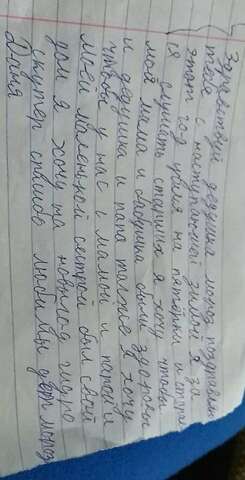 Здравствуй дедушка мороз поздравляю
тебя с наступающей зимой я за
этот год учила на пятёрки и старал
ся слушать старших я хочу чтобы
мой мама и бабушка были здоровы
и дедушка и папа тоже я хочу
чтобы у нас с мамой и папой и
моей маленькой сестрой был свой
дом я хочу на новый год гидро
скутер спасибо люблю дед мороз